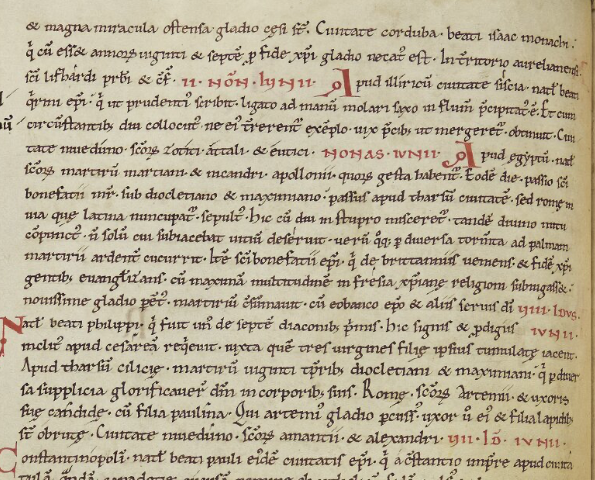 & magna miracula ostensa gladio cęsi st̄. Ciuitate corduba. beati isaac monachi.
q̇ cū ess& annorū uiginti & septē ꝓ fide xp̄i gladio necat᷒ est. In t̄ritorio aurelianensi
sc̄i lifhardi prb̄i & cf̄. II. NON̄. IVNII. Apud illiricū ciuitate siscia. nat̄l beati
q̇rini ep̄i. q̇ ut prudenti᷒ scribit. ligato ad manū molari saxo in flum̄ p̄cipitat᷒ ē. Et cum
circūstantib; diu collocut᷒ ne ei᷒ t̄rerent᷒ exēplo. uix p̄cib; ut mergeret᷒ obtinuit. Ciui
tate niueduno. sc̄orȝ zotici. attali. & eutici. NONAS. IVNII. Apud egyptū. nat̄l
sc̄orȝ martirū martiani & nicandri. apollonii. quorȝ gesta habent᷒. Eodē die. passio sc̄i
bonefatii mr̄. sub diocletiano & maximiano. passus apud tharsū ciuitatē. sed romę in
uia que latina nuncupat᷒. sepult᷒. Hic cū diu in stupro misceret᷒. tandē diuino nutu
cōpunct᷒. n̄ solū cui subiacebat uitiū deseruit. uerū q̇q; ꝑ diuersa tormta. ad palmam
martirii ardent᷒ cucurrit. Itē sc̄i bonefatii ep̄i. q̇ de brittanniis ueniens. & fidē xp̄i
gentib; euangl̄izans. cū maxima multitudinē in fresia xp̄ianę religioni subiugass&.
nouissime gladio p̄et᷒. martiriū c̄summauit. cū eobanco ep̄o & aliis seruis dī. IIII. IDVS.
Nat̄l beati philippi. q̇ fuit un᷒ de septē diaconib; p̄mis. hic signis & p̄digiis IVNII.
inclit᷒ apud cesareā reqeuit. iuxta quē tres uirgines filię ipsius tumulatę iacent.
Apud tharsū cilicię. martirū uiginti tp̄rib; diocletiani & maximiani. q̇ ꝑ diuer
sa supplicia glorificauer̄ dn̄m in corporib; suis. Romę. sc̄orȝ artemii. & uxoris
suę candidę. cū filia paulina. Qui artemi᷒ gladio pcuss᷒. uxor ū ei᷒ & filia lapidib;
st̄ obrutę. Ciuitate niueduno. sc̄orȝ amantii & alexandri. VII. ID̄. IVNII.
Constantinopoli. nat̄l beati pauli ei᷒dē ciuitatis ep̄i. q̇ a c̄stantio impr̄e apud cuuita